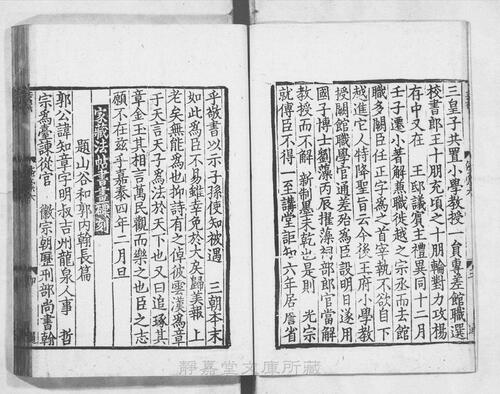 三皇子共置小學教授一員專差館職選
校書郎王十朋充頃之十朋輪對力攻楊
存中又在 王邸議賓主禮異同十二月
壬子遷小著解兼職徙越之宗丞而去館
職多闕臣任正字爲之首宰執不欲自下
越進它人特降聖旨云今後王府小學教
授闕館職學官通差殆爲臣設明日遂用
國子博士劉藻丙辰擢藻祠部郎官當解
教授而不解 新制學未乾也是則 光宗
就傳臣不得一至講堂詎知六年居詹省
乎敬書以示子孫便知被遇 三朝本末
如此爲臣不易雖幸免於大戾歸美報 上
老矣無能爲也抑詩有之倬彼雲漢爲章
于天言天子爲法於天下也又曰追琢其
章金玉其相言萬民觀而樂之也臣之志
願不在茲乎嘉泰四年二月旦
家藏法帖書畫碑刻
題山谷和郭内翰長篇
郭公諱知章字明叔吉州龍泉人事 哲
宗爲臺諫從官 徽宗朝歷刑部尚書翰
靜嘉堂文庫所藏